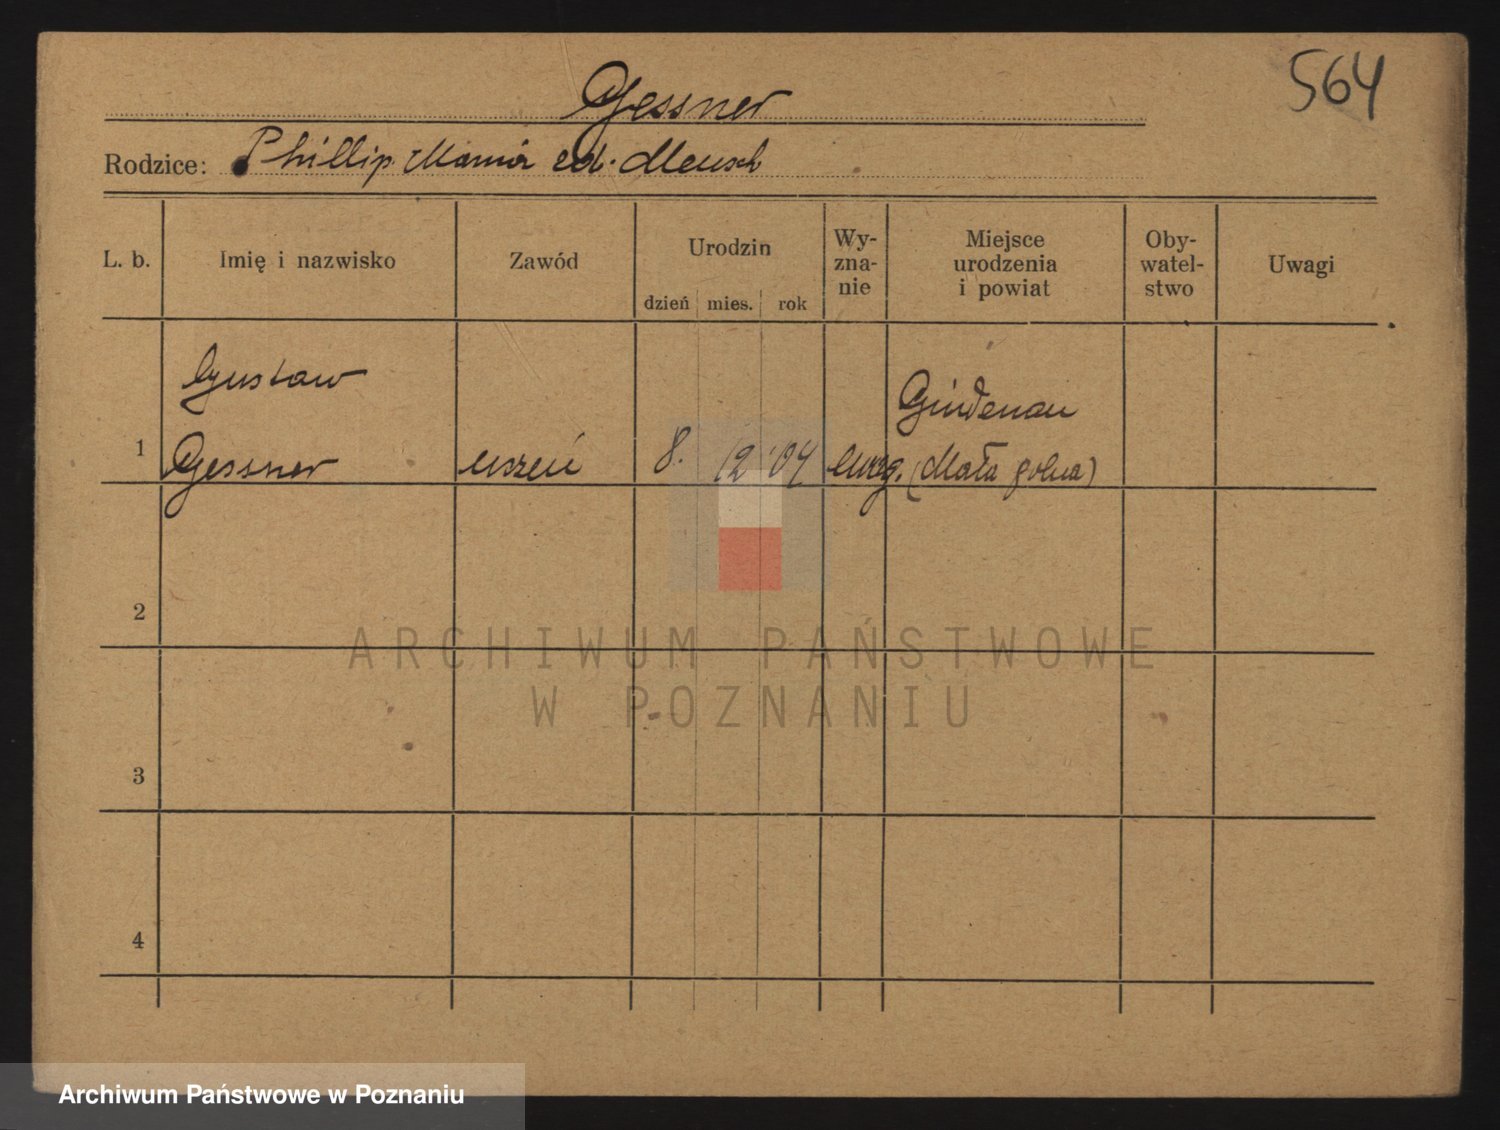 564
Gessner
Rodzice: Phillip. Maria
L. b. Imię i nazwisko Zawód Urodzin dzień mies. rok Wy-zna-nie Miejsce urodzenia i powiat Oby-watel-stwo Uwagi
Gustaw
1 Gessner uczeń 8. 12 04 ewg. (Mała
2
ARCHIWUM PAŃSTWOWE
W POZNANIU
3
4
Archiwum Państwowe w Poznaniu